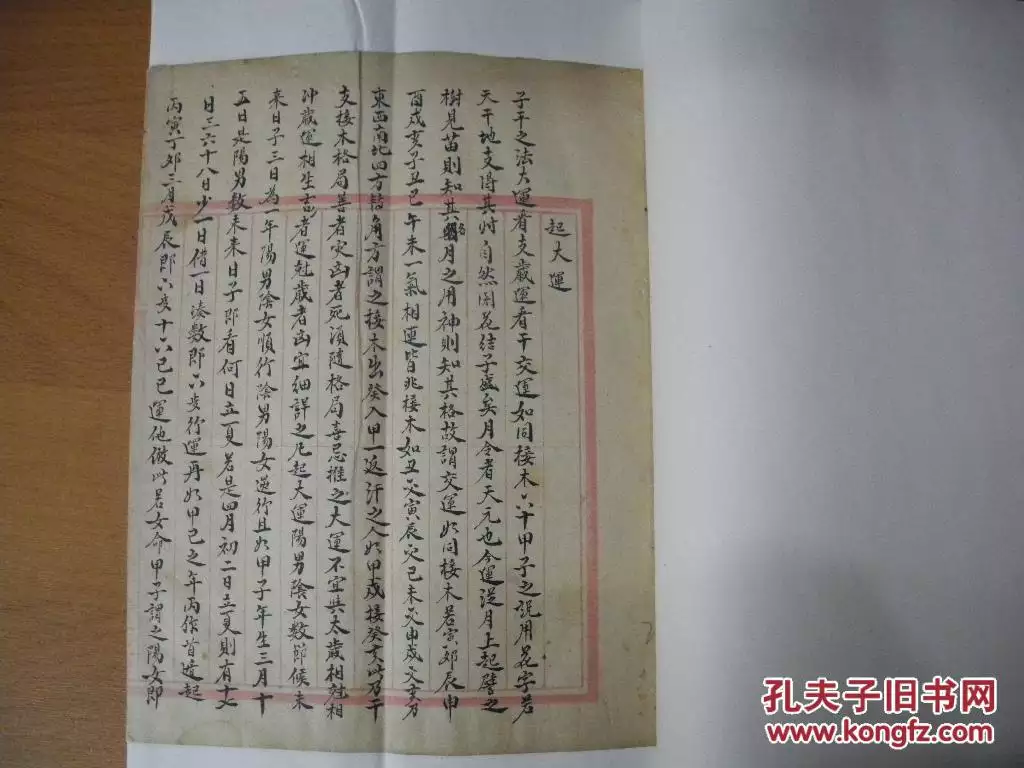 起大運
子平之法大運者支歲運者干交運如同接木六十甲子之説用花字若
天干地支得其时自然開花結子盛矣月令者天元也今運從月上起譬之
樹見苗則知其名月之用神則知其格故謂交運如同接木若寅卯辰申
酉戌亥子丑巳午未一氣相連皆非接木如丑交寅辰交巳未交申戌交亥乃
東西南北四方轉角方謂之接木出癸入甲一返汗之人如甲戌接癸亥此乃干
支接木格局善者灾凶者死須隨格局喜忌推之大運不宜與太歲相尅相
冲歲運相生吉者運尅歲者凶宜細詳之凡起大運陽男陰女数節候未
来日子三日為一年陽男陰女順行陰男陽女逆行且如甲子年生三月十
五日是陽男数未来日子即看何日立夏若是四月初二日立夏則有十七
日三六十八日少一日借一日湊数即六歲行運再如甲己之年丙作首逆起
丙寅丁卯二月戊辰即六歲十六己巳運他倣此若女命甲子謂之陽女即
孔夫子旧书网
www.kongfz.com